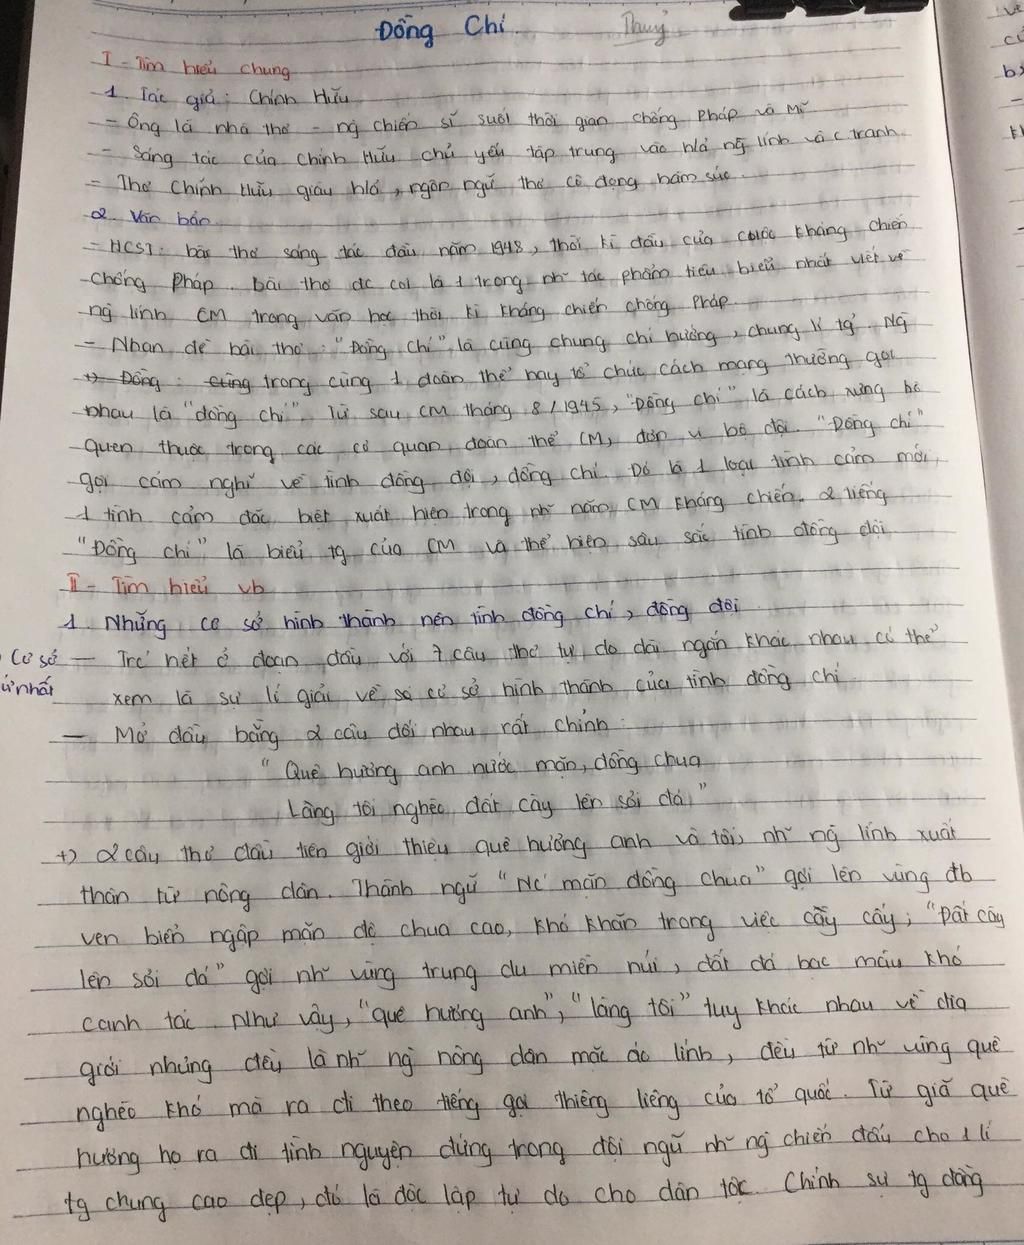 Đồng Chí. Thuỷ
I - Tìm hiểu chung
1. Tác giả: Chính Hữu
- Ông là nhà thơ - ng chiến sĩ suốt thời gian chống Pháp và Mĩ
- Sáng tác của Chính Hữu chủ yếu tập trung vào h/ả ng lính và c tranh
- Thơ Chính Hữu giàu h/ả, ngôn ngữ thơ cô đọng hàm súc.
2. Văn bản
- HCST: bài thơ sáng tác đầu năm 1948, thời kì đầu của cuộc kháng chiến
chống Pháp. bài thơ đc coi là 1 trong nh~ tác phẩm tiêu biểu nhất viết về
ng lính CM trong văn học thời kì kháng chiến chống Pháp.
- Nhan đề bài thơ: "Đồng Chí" là cùng chung chí hướng, chung lí tg. Ng
+) Đồng: Cùng trong cùng 1 đoàn thể hay tổ chức cách mạng thường gọi
nhau là "đồng chí". Từ sau CM tháng 8/1945, "Đồng chí" là cách xưng hô
quen thuộc trong các cơ quan, đoàn thể CM, đơn vị bộ đội. "Đồng chí"
gợi cảm nghĩ về tình đồng đội, đồng chí. Đó là 1 loại tình cảm mới,
1 tình cảm đặc biệt xuất hiện trong nh~ năm CM kháng chiến. 2 tiếng
"Đồng chí" là biểu tg của CM và thể hiện sâu sắc tình đồng đội
II - Tìm hiểu vb
1. Những cơ sở hình thành nên tình đồng chí, đồng đội
Cơ sở - Trc hết ở đoạn đầu với 7 câu thơ tự do dài ngắn khác nhau có thể
ứ nhất xem là sự lí giải về sơ cơ sở hình thành của tình đồng chí
- Mở đầu bằng 2 câu đối nhau rất chỉnh:
"Quê hương anh nước mặn, đồng chua
Làng tôi nghèo đất cày lên sỏi đá"
+) 2 câu thơ đầu tiên giới thiệu quê hương anh và tôi, nh~ ng lính xuất
thân từ nông dân. Thành ngữ "Nc mặn đồng chua" gợi lên vùng đb
ven biển ngập mặn độ chua cao, khó khăn trong việc cầy cấy; "Đất cày
lên sỏi đá" gợi nh~ vùng trung du miền núi, đất đá bạc màu khó
canh tác. Như vậy, "quê hương anh", "làng tôi" tuy khác nhau về địa
giới nhưng đều là nh~ ng nông dân mặc áo lính, đều từ nh~ vùng quê
nghèo khó mà ra đi theo tiếng gọi thiêng liêng của tổ quốc. Từ giã quê
hương họ ra đi tình nguyện đứng trong đội ngũ nh~ ng chiến đấu cho 1 lí
tg chung cao đẹp, đó là độc lập tự do cho dân tộc. Chính sự tg đồng